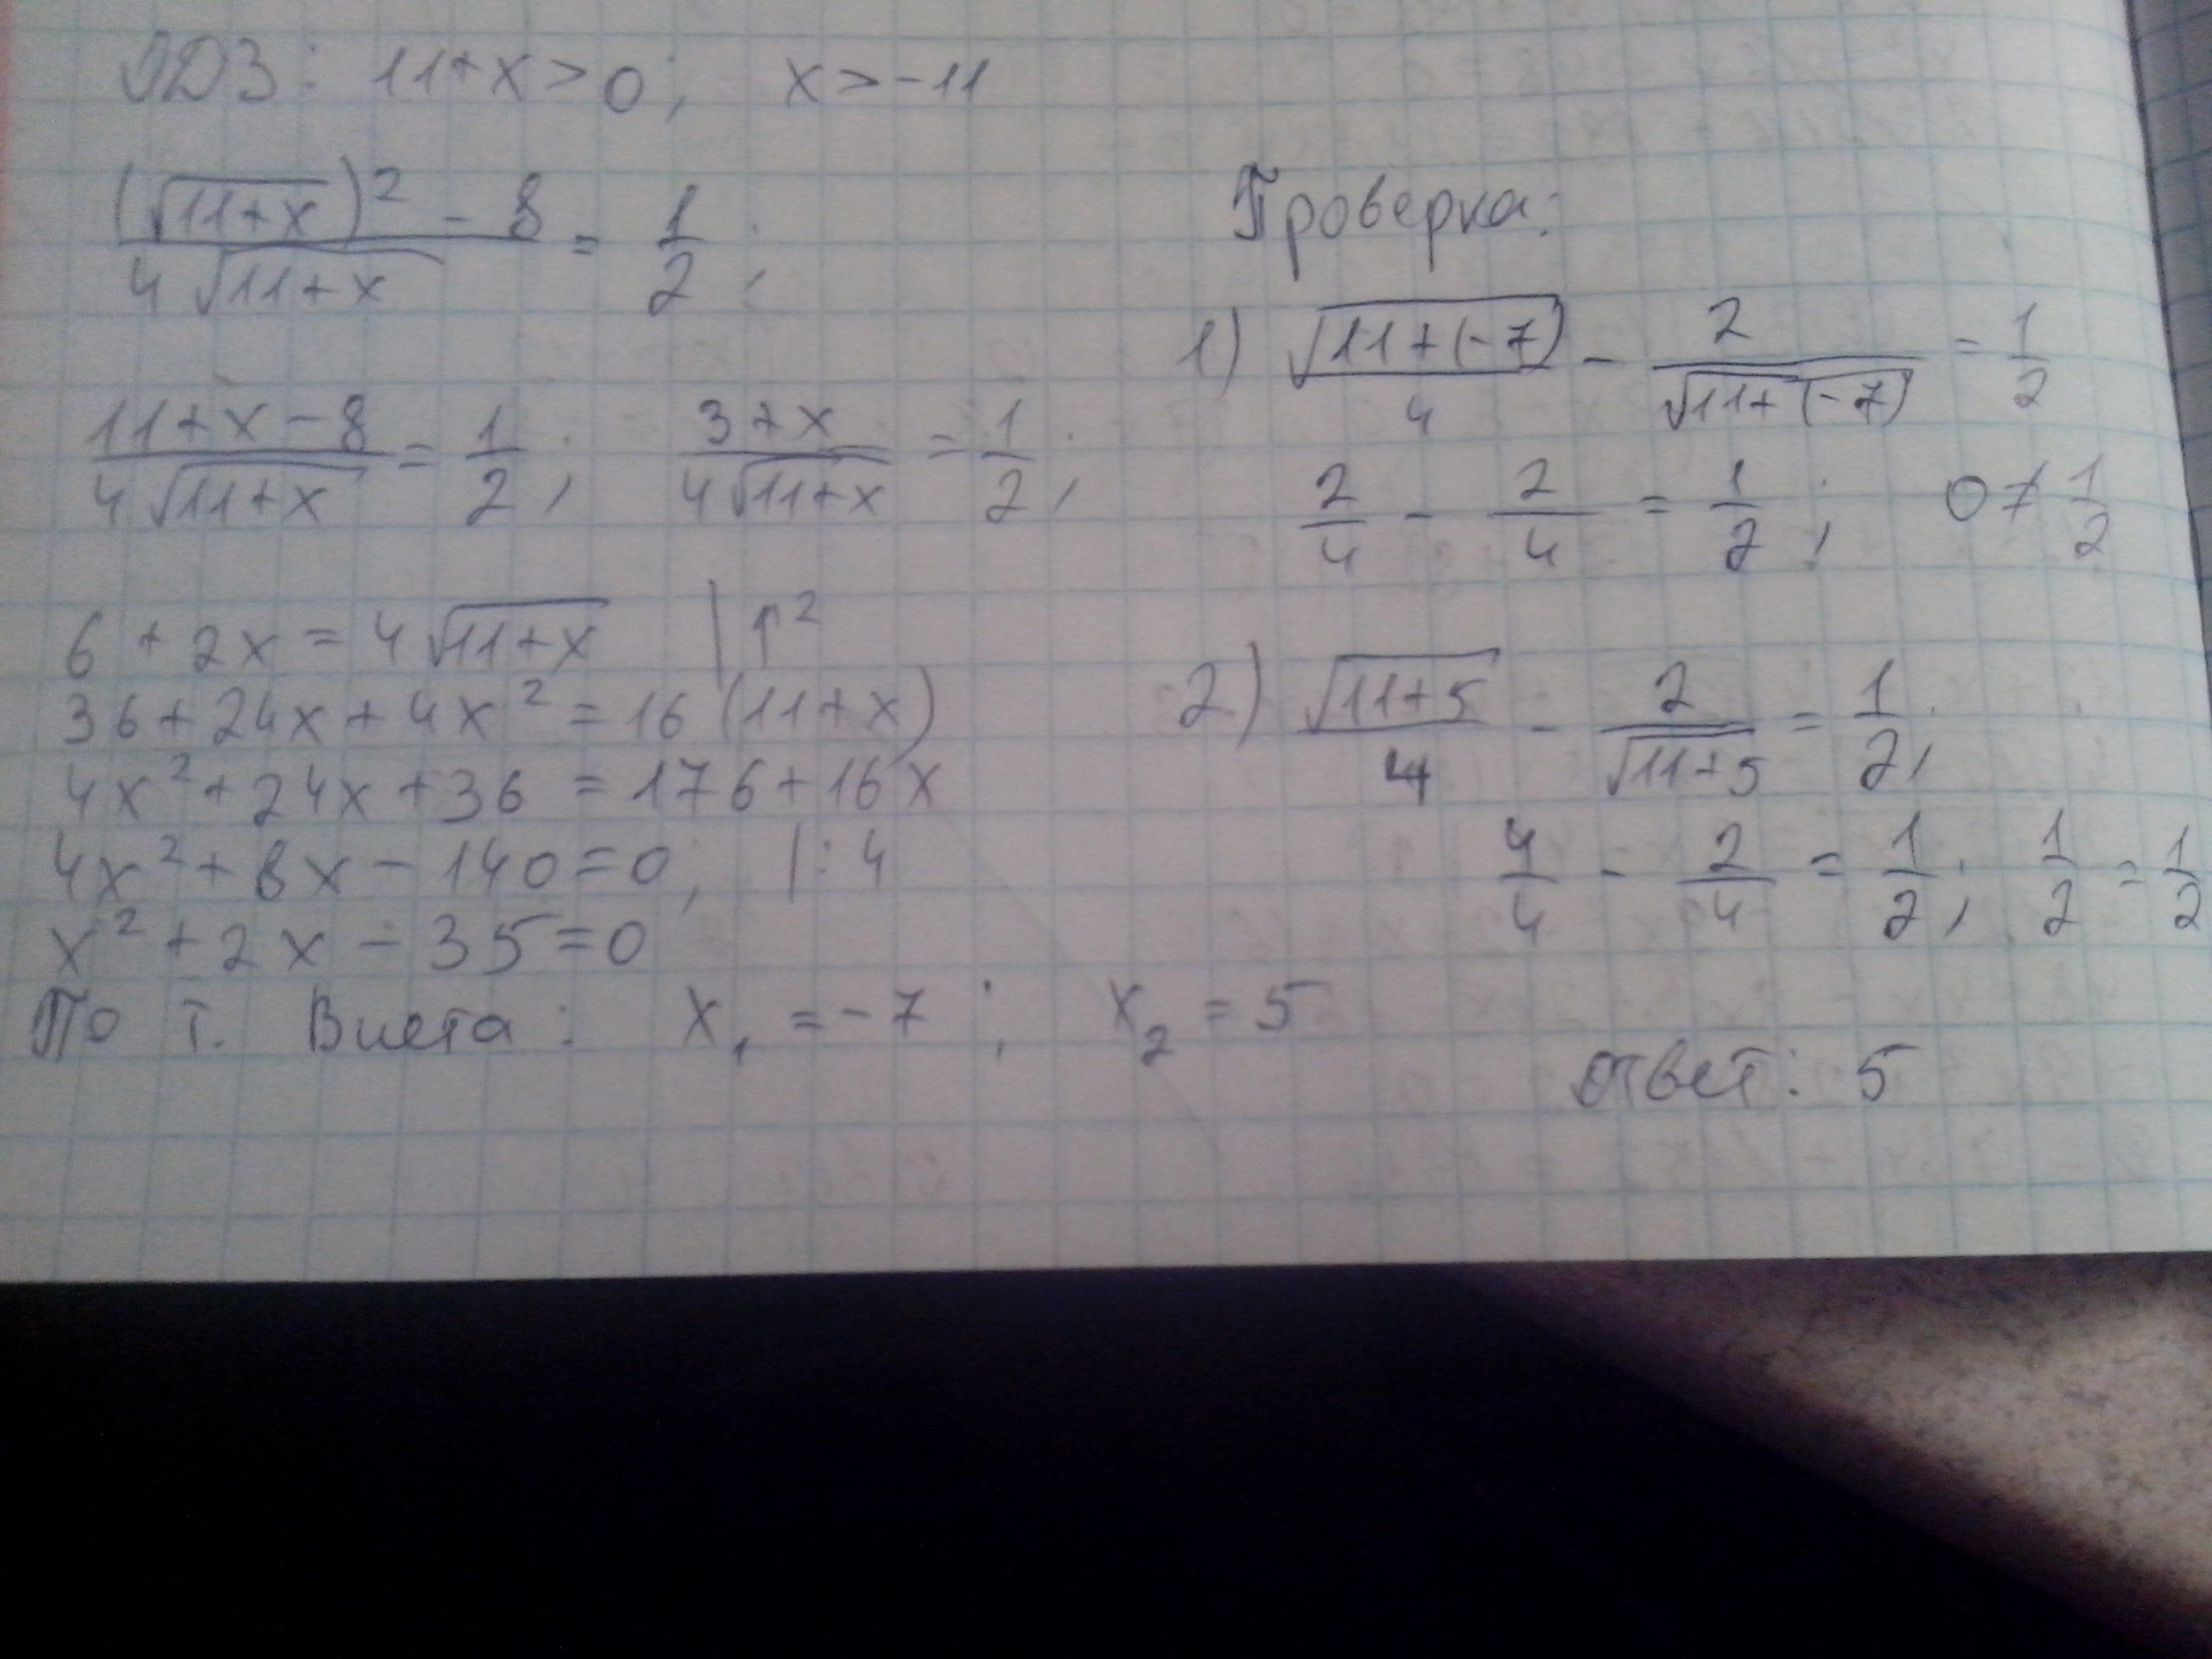 ОДЗ: 11+x>0; x>-11
(√(11+x))² - 8 / 4√(11+x) = 1/2;
11+x-8 / 4√(11+x) = 1/2; 3+x / 4√(11+x) = 1/2;
6+2x=4√(11+x) |↑²
36+24x+4x²=16(11+x)
4x²+24x+36=176+16x
4x²+8x-140=0; |:4
x²+2x-35=0
По т. Виета: x₁=-7; x₂=5
Проверка:
1) √(11+(-7)) / 4 - 2 / √(11+(-7)) = 1/2
2/4 - 2/4 = 1/2; 0≠1/2
2) √(11+5) / 4 - 2 / √(11+5) = 1/2;
4/4 - 2/4 = 1/2; 1/2=1/2
Ответ: 5